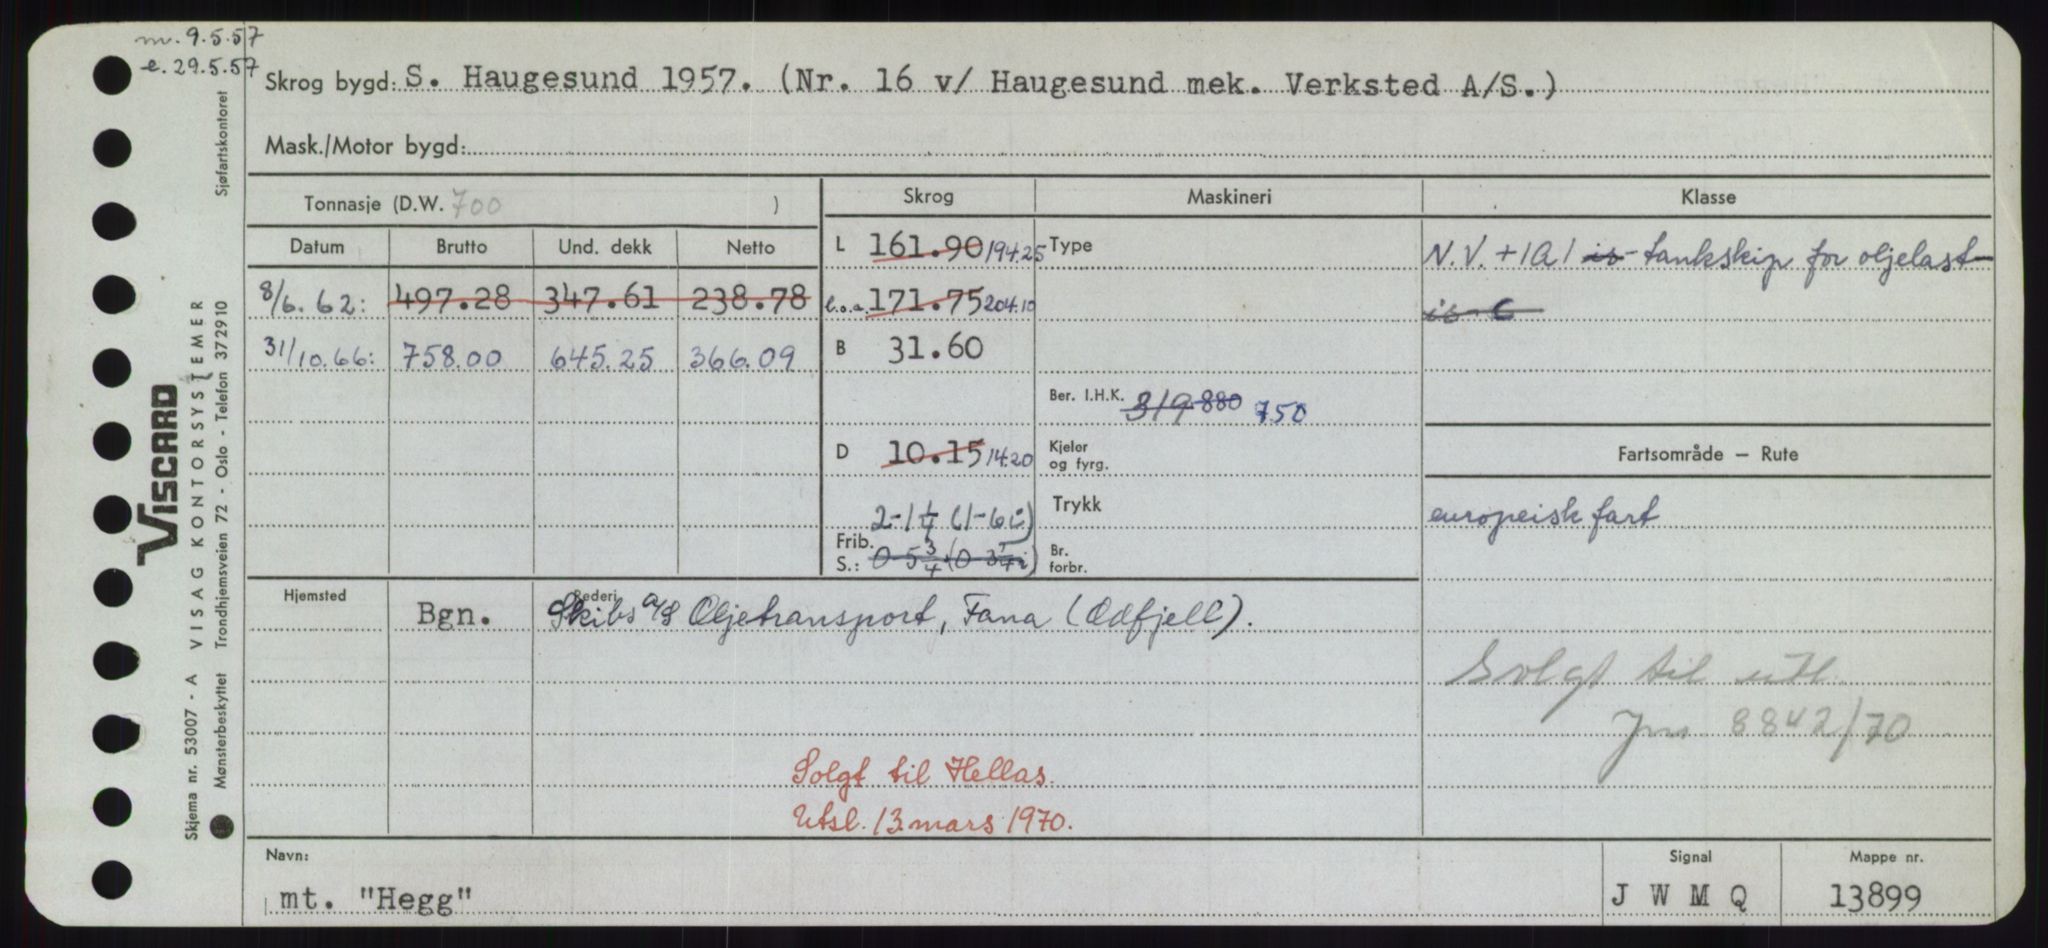 m. 9.5.57
e. 29.5.57
Skrog bygd: S. Haugesund 1957. (Nr. 16 v/ Haugesund mek. Verksted A/S.)
Mask./Motor bygd:
Tonnasje (D.W. 700 )
Datum Brutto Und. dekk Netto
8/6. 62: 497.28 347.61 238.78
31/10.66: 758.00 645.25 366.09
Skrog
L 161.90 194.25
l.o.a. 171.75 204.10
B 31.60
D 10.15 14.20
2-1 1/4 (1-6 i)
Frib.
S.: 0-5 3/4 (0-3 i)
Maskineri
Type
Ber. I.H.K. 319 880 750
Kjeler
og fyrg.
Trykk
Br.
forbr.
Klasse
N.V. +1A1 is- tankskip for oljelast-
is-C
Fartsområde – Rute
europeisk fart
Hjemsted Rederi
Bgn. Skibs A/S Oljetransport, Fana (Odfjell).
Solgt til utl.
Jnr 8842/70
Solgt til Hellas.
Utsl. 13. mars 1970.
Navn: Signal Mappe nr.
mt. "Hegg" J W M Q 13899
VISCARD
Skjema nr. 53007 - A VISAG KONTORSYSTEMER
Mønsterbeskyttet Trondhjemsveien 72 - Oslo - Telefon 372910 Sjøfartskontoret